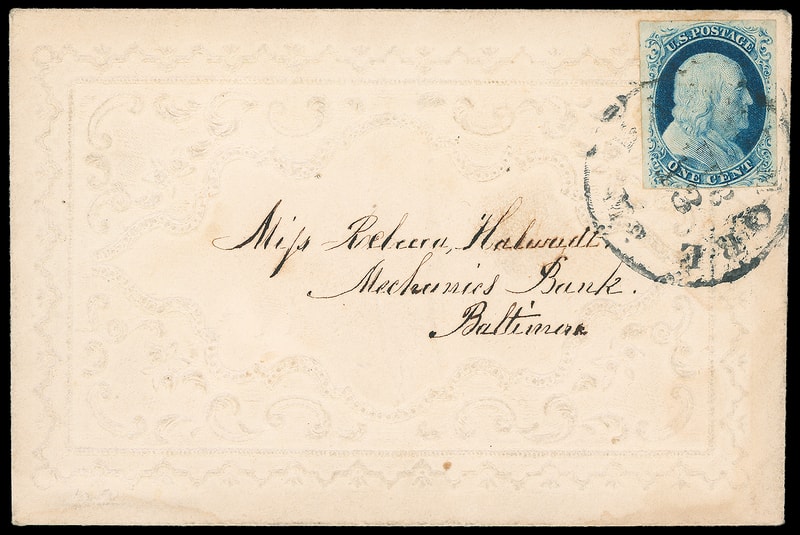 U.S. POSTAGE
ONE CENT
Miss Rebecca Halwadt
Mechanics Bank.
Baltimore